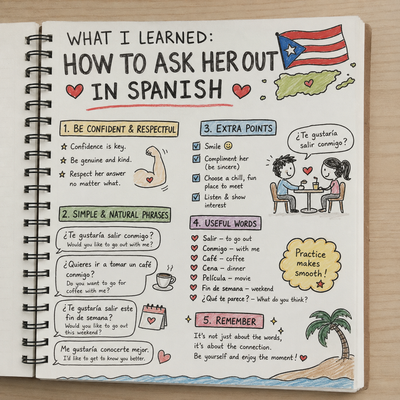 WHAT I LEARNED:
HOW TO ASK HER OUT
IN SPANISH
1. BE CONFIDENT & RESPECTFUL
Confidence is key.
Be genuine and kind.
Respect her answer
no matter what.
2. SIMPLE & NATURAL PHRASES
¿Te gustaría salir conmigo?
Would you like to go out with me?
¿Quieres ir a tomar un café
conmigo?
Do you want to go
for coffee with me?
¿Te gustaría salir este
fin de semana?
Would you like to go out
this weekend?
Me gustaría conocerte mejor.
I'd like to get to know you better.
3. EXTRA POINTS
Smile
Compliment her
(be sincere)
Choose a chill, fun
place to meet
Listen & show
interest
¿Te gustaría
salir conmigo?
4. USEFUL WORDS
Salir – to go out
Conmigo – with me
Café – coffee
Cena – dinner
Película – movie
Fin de semana – weekend
¿Qué te parece? – What do you think?
Practice
makes
smooth!
5. REMEMBER
It's not just about the words,
it's about the connection.
Be yourself and enjoy the moment!